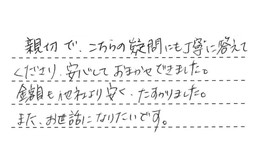 親切で、こちらの疑問にも丁寧に答えて
くださり、安心しておまかせできました。
金額も他社より安く、たすかりました。
また、お世話になりたいです。